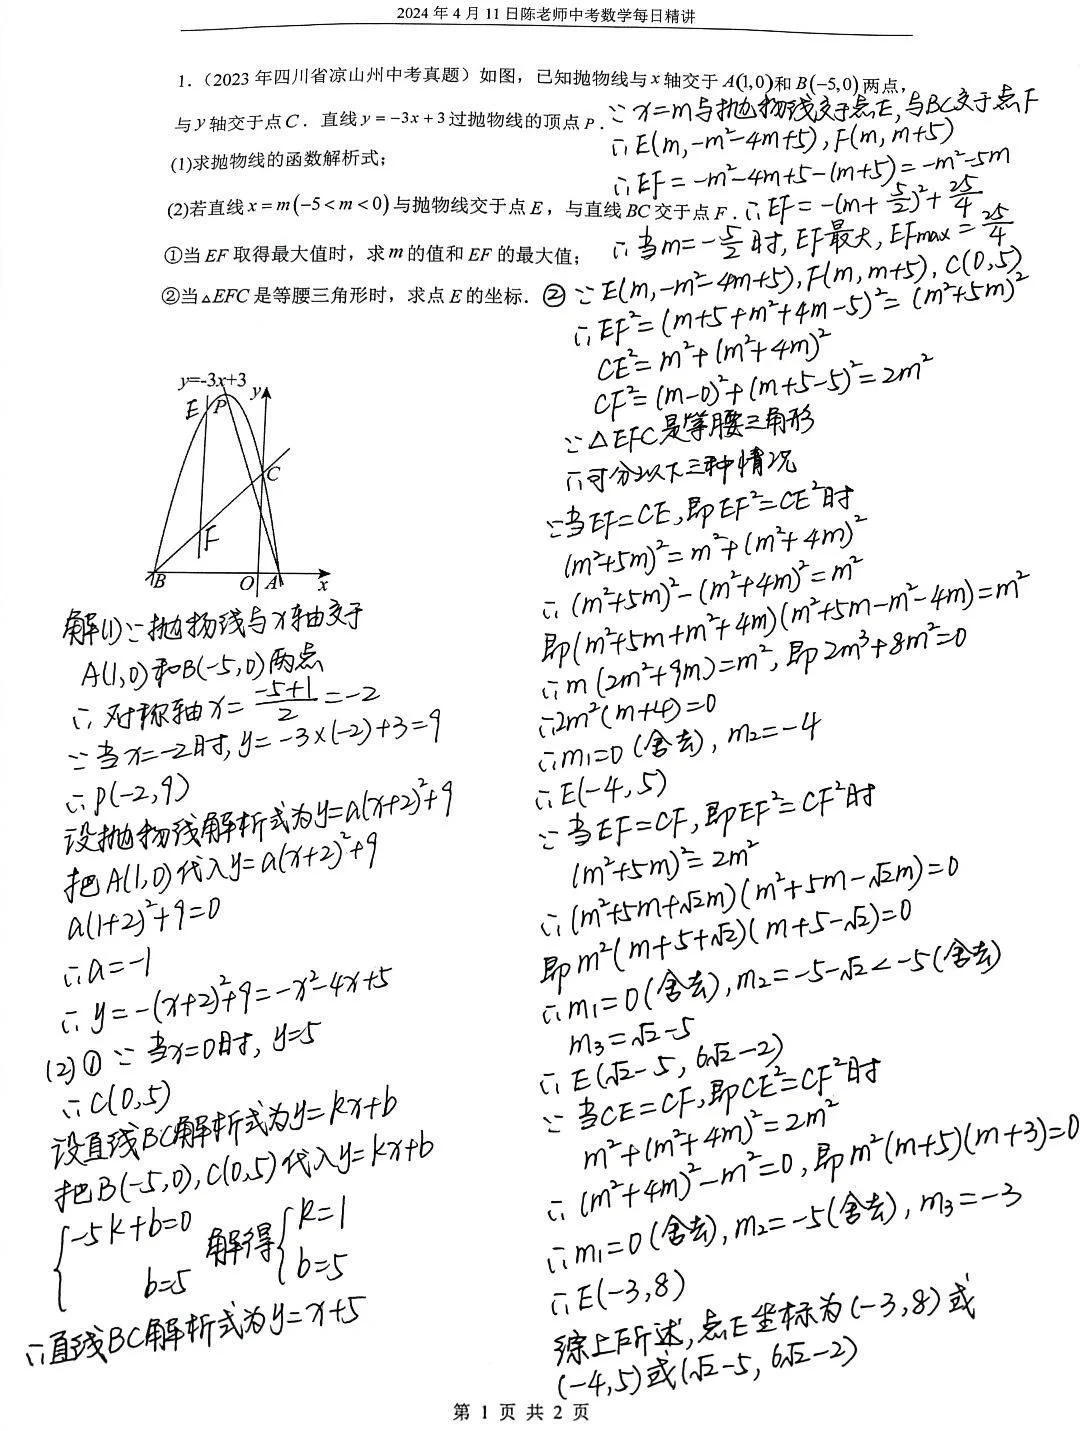 2024 年 4 月 11 日陈老师中考数学每日精讲
1．（2023 年四川省凉山州中考真题）如图，已知抛物线与 x 轴交于 A(1,0)和 B(−5,0)两点，
与 y 轴交于点 C．直线 y = −3x + 3 过抛物线的顶点 P．
(1)求抛物线的函数解析式；
(2)若直线 x = m(−5 < m < 0)与抛物线交于点 E，与直线 BC 交于点 F．
①当 EF 取得最大值时，求 m 的值和 EF 的最大值；
②当△EFC 是等腰三角形时，求点 E 的坐标．
y=-3x+3
y
E P
C
F
B O A x
解(1)∵抛物线与x轴交于
A(1,0)和B(-5,0)两点
∴对称轴x=(-5+1)/2=-2
∵当x=-2时,y=-3×(-2)+3=9
∴P(-2,9)
设抛物线解析式为y=a(x+2)²+9
把A(1,0)代入y=a(x+2)²+9
a(1+2)²+9=0
∴a=-1
∴y=-(x+2)²+9=-x²-4x+5
(2)①∵当x=0时,y=5
∴C(0,5)
设直线BC解析式为y=kx+b
把B(-5,0),C(0,5)代入y=kx+b
{-5k+b=0 解得{k=1
b=5 b=5
∴直线BC解析式为y=x+5
∵x=m与抛物线交于点E,与BC交于点F
∴E(m,-m²-4m+5),F(m,m+5)
∴EF=-m²-4m+5-(m+5)=-m²-5m
∴EF=-(m+5/2)²+25/4
∴当m=-5/2时,EF最大,EFmax=25/4
②∵E(m,-m²-4m+5),F(m,m+5),C(0,5)
∴EF²=(m+5+m²+4m-5)²=(m²+5m)²
CE²=m²+(m²+4m)²
CF²=(m-0)²+(m+5-5)²=2m²
∵△EFC是等腰三角形
∴可分以下三种情况
∵当EF=CE,即EF²=CE²时
(m²+5m)²=m²+(m²+4m)²
∴(m²+5m)²-(m²+4m)²=m²
即(m²+5m+m²+4m)(m²+5m-m²-4m)=m²
∴m(2m²+9m)=m²,即2m³+8m²=0
∴2m²(m+4)=0
∴m₁=0(舍去),m₂=-4
∴E(-4,5)
∵当EF=CF,即EF²=CF²时
(m²+5m)²=2m²
∴(m²+5m+√2m)(m²+5m-√2m)=0
即m²(m+5+√2)(m+5-√2)=0
∴m₁=0(舍去),m₂=-5-√2<-5(舍去)
m₃=√2-5
∴E(√2-5,6√2-2)
∵当CE=CF,即CE²=CF²时
m²+(m²+4m)²=2m²
∴(m²+4m)²-m²=0,即m²(m+5)(m+3)=0
∴m₁=0(舍去),m₂=-5(舍去),m₃=-3
∴E(-3,8)
综上所述,点E坐标为(-3,8)或
(-4,5)或(√2-5,6√2-2)
第 1 页 共 2 页